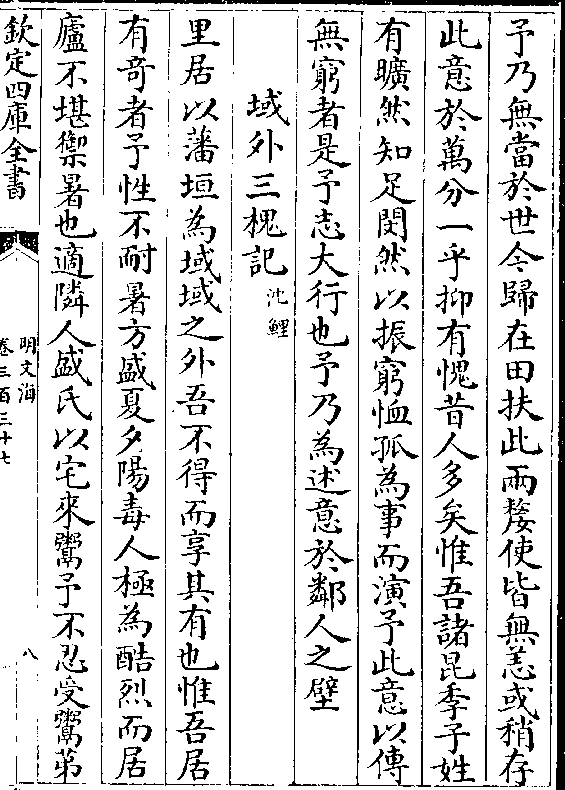 予乃無當於世今歸在田扶此兩嫠使皆無恙或稍存
此意於萬分一乎抑有愧昔人多矣惟吾諸昆季子姓
有曠然知足閔然以振窮恤孤為事而演予此意以傳
無窮者是予志大行也予乃為述意於鄰人之壁
域外三槐記 沈鯉
里居以藩垣為域域之外吾不得而享其有也惟吾居
有奇者予性不耐暑方盛夏夕陽毒人極為酷烈而居
廬不堪禦暑也適隣人盛氏以宅來鬻予不忍受鬻苐
欽定四庫全書
明文海
卷三百三十七
八